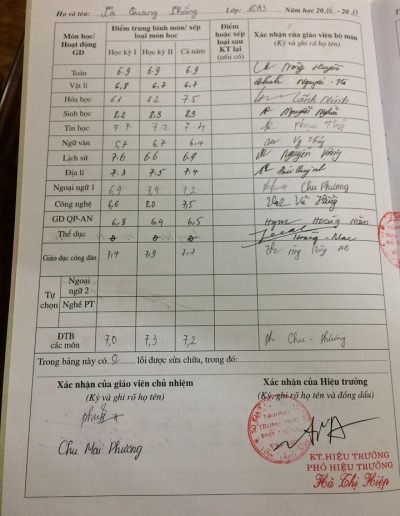 Họ và tên: Tạ Quang Thắng Lớp: 10A3 Năm học 20.16 - 20.17
Môn học/ Hoạt động GD
Điểm trung bình môn/ xếp loại môn học
Học kỳ I Học kỳ II Cả năm
Điểm hoặc xếp loại sau KT lại (nếu có)
Xác nhận của giáo viên bộ môn
(Ký và ghi rõ họ tên)
Toán 6.9 6.9 6.9
Vật lí 6,8 6,7 6,7 Nguyễn
Hóa học 6.1 8.2 7.5 Lãnh Minh
Sinh học 8.2 8.3 8.3 Nguyễn
Tin học 7.7 7.2 7.4
Ngữ văn 5,7 6,7 6.4 Vy Thủy
Lịch sử 7.6 6.6 6.9 Nguyễn
Địa lí 7.3 7.5 7.4
Ngoại ngữ 1 6,9 7,4 7,2 Chu Phương
Công nghệ 6,6 8,0 7,5 Vũ Hằng
GD QP-AN 6,8 6,4 6,5 Hoàng Năm
Thể dục Đ Đ Đ
Giáo dục công dân 7,4
Tự chọn
Ngoại ngữ 2
Nghề PT
ĐTB các môn 7,0 7,3 7,2 Chu - Phương
Trong bảng này có 0 lỗi được sửa chữa, trong đó:
Xác nhận của giáo viên chủ nhiệm
(Ký, ghi rõ họ tên)
Chu Mai Phương
Xác nhận của Hiệu trưởng
(Ký, ghi rõ họ tên và đóng dấu)
TRƯỜNG
TRUNG HỌC
PHỔ THÔNG
KT.HIỆU TRƯỞNG
PHÓ HIỆU TRƯỞNG
Hà Thị Hiệp